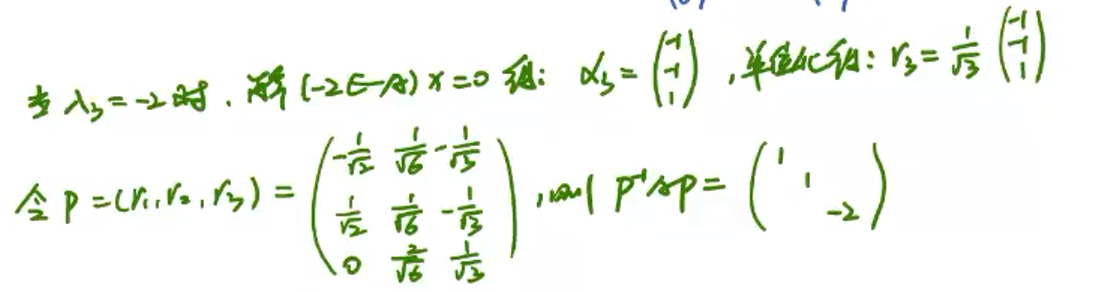 当 λ₃ = -2 时, 解 (-2E-A) x = 0 得: α₃ = (-1 -1 1), 单位化得: r₃ = 1/√3 (-1 -1 1)
令 P = (r₁, r₂, r₃) = (-1/√2 1/√6 -1/√3
1/√2 1/√6 -1/√3
0 2/√6 1/√3), 则 P⁻¹AP = (1 1 -2)